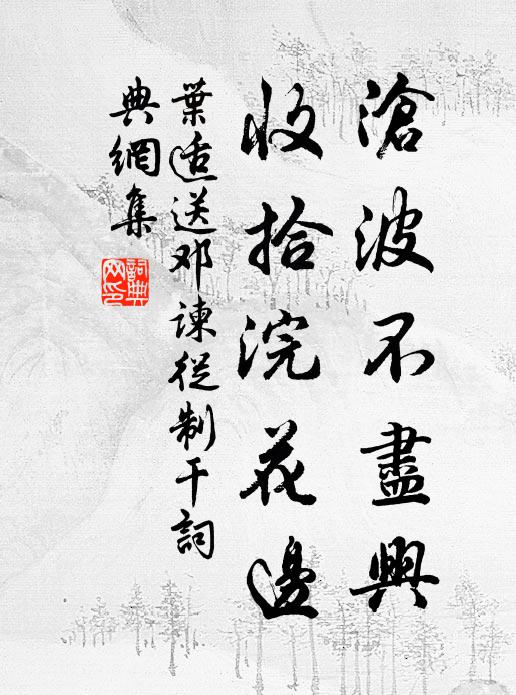 滄波不盡興
收拾浣花邊
葉适送邓諫從制干詞
典網集
詞典
网印